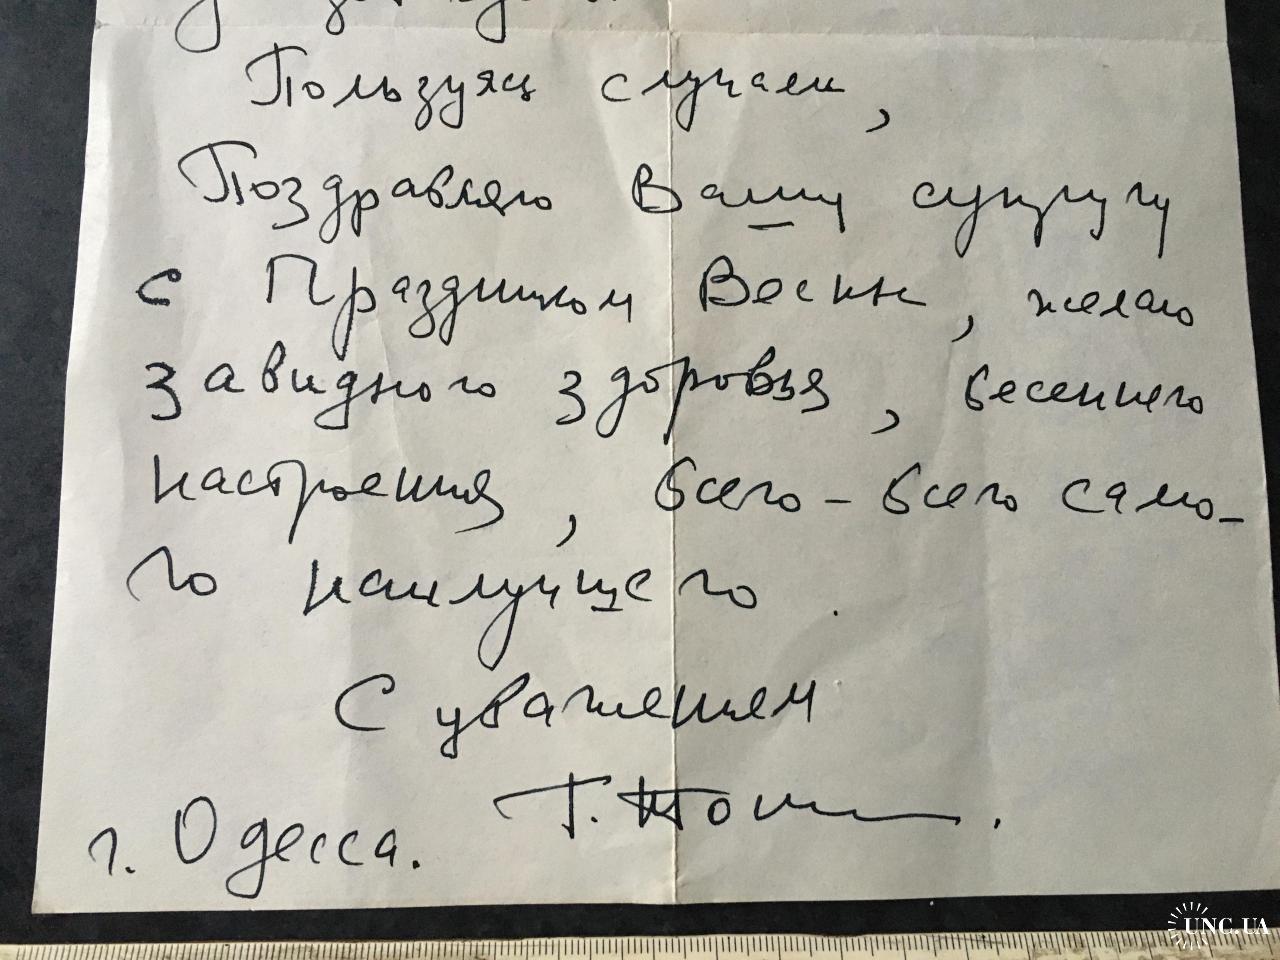 Пользуясь случаем,
Поздравляю Вашу супругу
с Праздником Весны, желаю
завидного здоровья, весеннего
настроения, всего-всего само-
го наилучшего.
С уважением
Г.
г. Одесса.
UNC.UA